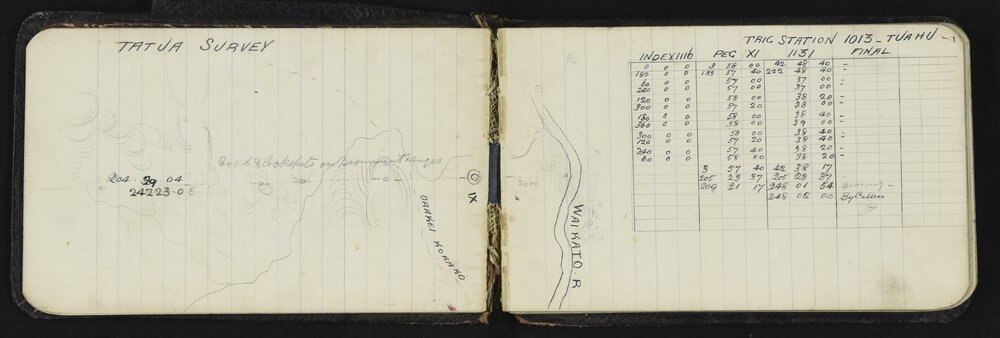 TATUA SURVEY
204 . 29 04
24223.0
ORAKEI KORAKO
IX
WAIKATO. R
TRIG STATION 1013 - TUAHU
INDEX 1116 PEG XI 1131 FINAL
0 0 0 3 58 00 42 48 40 "
180 0 0 183 57 40 222 48 40 "
60 0 0 57 00 37 00 "
240 0 0 57 00 37 00
120 0 0 58 00 38 20 "
300 0 0 57 20 38 00 "
180 0 0 58 00 38 40 "
360 0 0 58 00 39 00 "
300 0 0 58 00 38 40 "
120 0 0 57 20 38 40 "
240 0 0 57 40 38 20 "
60 0 0 58 00 38 20 "
3 57 40 42 38 17
205 23 37 205 23 37
209 21 17 248 01 54 Bearing
248 02 00 By